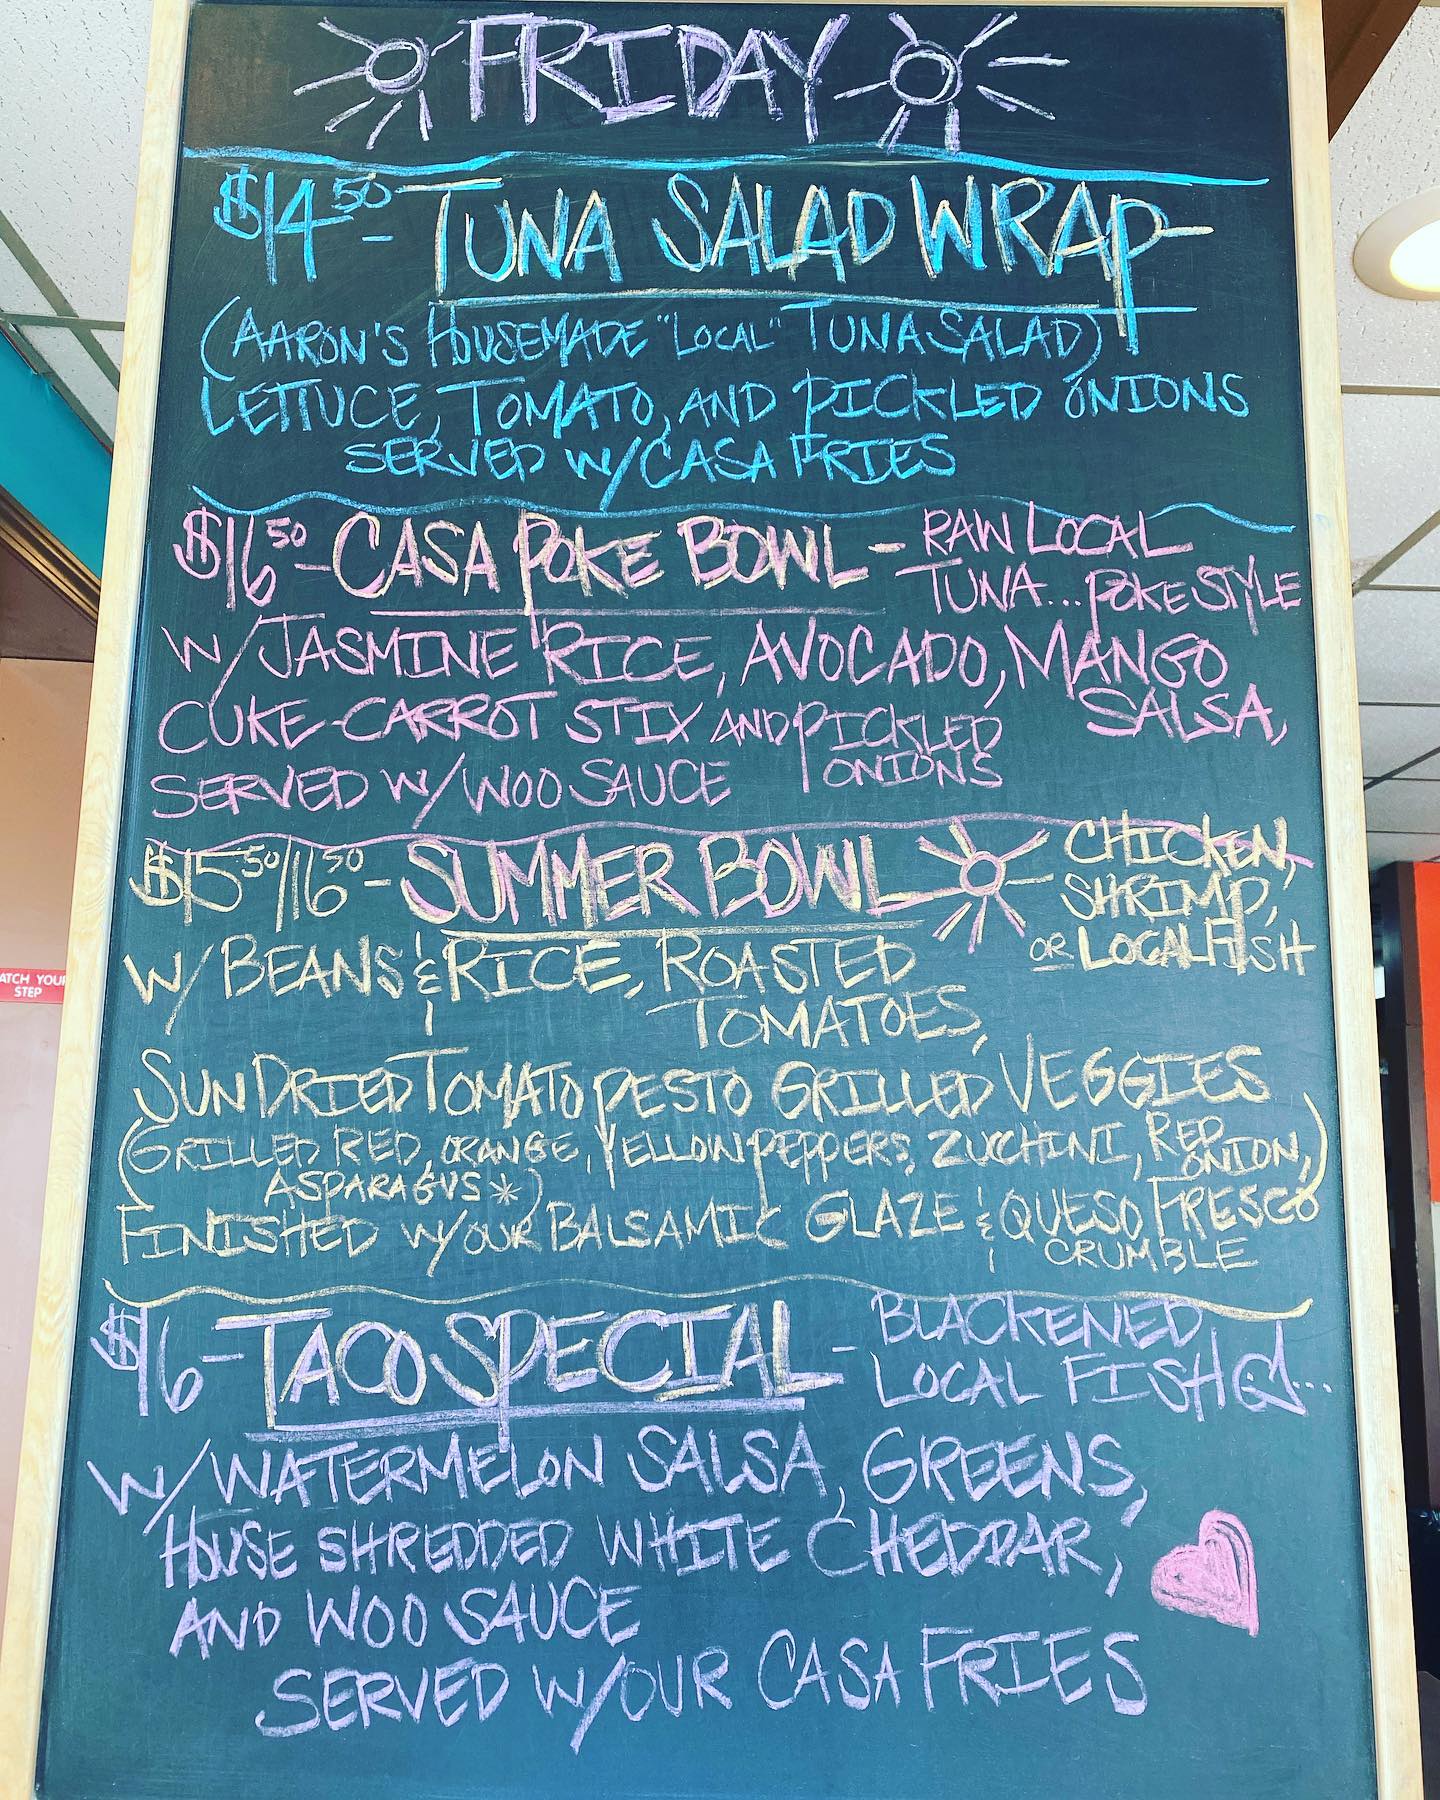 FRIDAY
$14.50 - TUNA SALAD WRAP -
(AARON'S HOUSEMADE "LOCAL" TUNA SALAD)
LETTUCE, TOMATO, AND PICKLED ONIONS
SERVED W/ CASA FRIES
$16.50 - CASA POKE BOWL - RAW LOCAL
TUNA... POKE STYLE
W/ JASMINE RICE, AVOCADO, MANGO
SALSA,
CUKE-CARROT STIX AND PICKLED
ONIONS
SERVED W/ WOO SAUCE
$15.50/16.50 - SUMMER BOWL CHICKEN,
SHRIMP,
OR LOCAL FISH
W/ BEANS & RICE, ROASTED
TOMATOES,
SUNDRIED TOMATO PESTO GRILLED VEGGIES
(GRILLED RED, ORANGE, YELLOW PEPPERS, ZUCCHINI, RED
ONION,)
ASPARAGUS*)
FINISHED W/ OUR BALSAMIC GLAZE & QUESO FRESCO
CRUMBLE
$16 - TACO SPECIAL - BLACKENED
LOCAL FISH
W/ WATERMELON SALSA, GREENS,
HOUSE SHREDDED WHITE CHEDDAR,
AND WOO SAUCE
SERVED W/ OUR CASA FRIES
ATCH YOUR
STEP